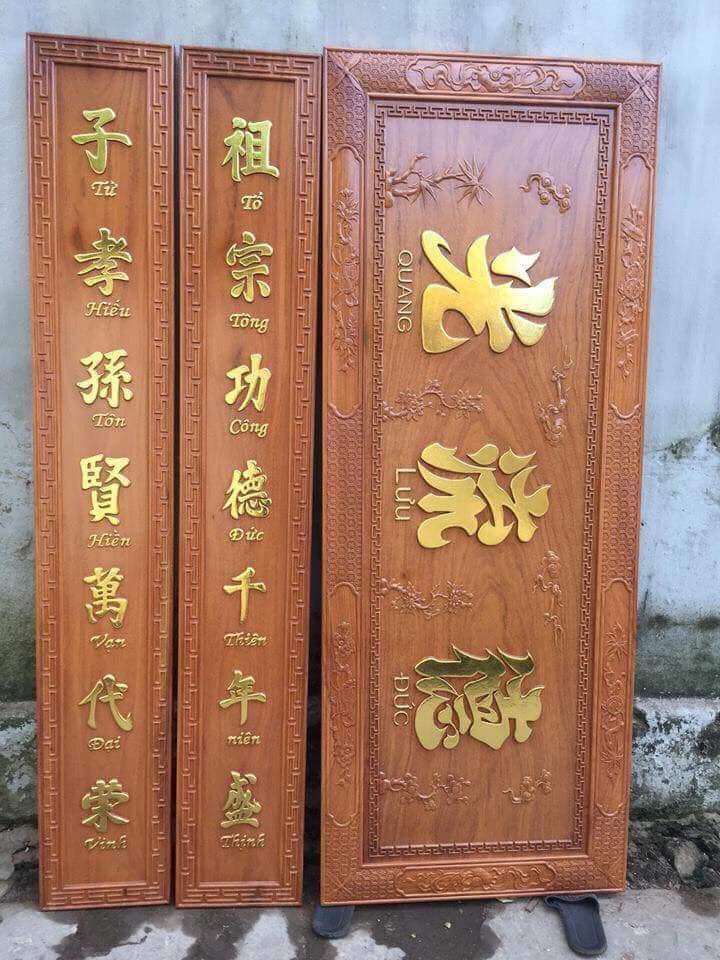 子
Tử
孝
Hiếu
孫
Tôn
賢
Hiền
萬
Vạn
代
Đại
荣
Vinh
祖
Tổ
宗
Tông
功
Công
德
Đức
千
Thiên
年
niên
盛
Thịnh
光
QUANG
流
LƯU
德
ĐỨC